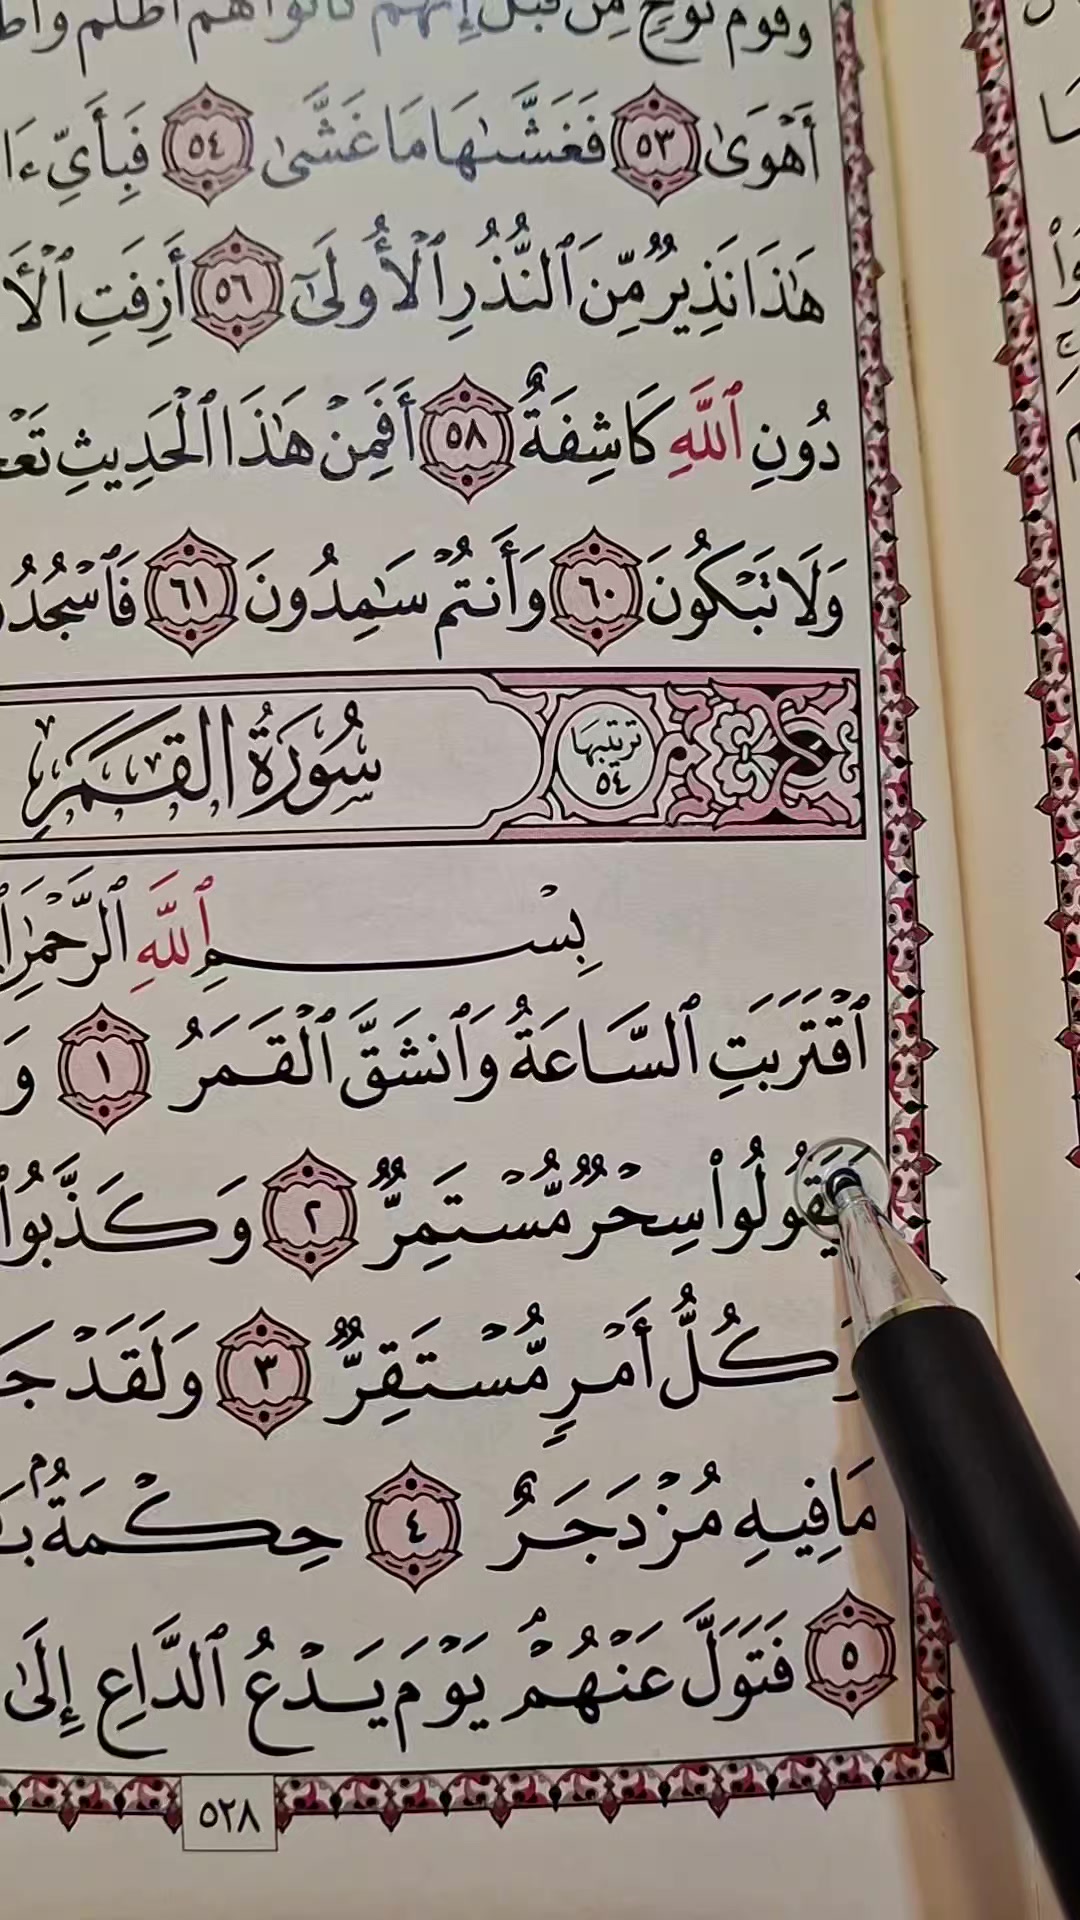 وَقَوْمَ نُوحٍ مِّن قَبْلُ إِنَّهُمْ كَانُوا۟ هُمْ أَظْلَمَ
أَهْوَىٰ ٥٣ فَغَشَّىٰهَا مَا غَشَّىٰ ٥٤ فَبِأَىِّ ءَا
هَٰذَا نَذِيرٌ مِّنَ ٱلنُّذُرِ ٱلْأُولَىٰٓ ٥٦ أَزِفَتِ ٱلْأَ
دُونِ ٱللَّهِ كَاشِفَةٌ ٥٨ أَفَمِنْ هَٰذَا ٱلْحَدِيثِ تَعْ
وَلَا تَبْكُونَ ٦٠ وَأَنتُمْ سَٰمِدُونَ ٦١ فَٱسْجُدُ
ترتيبها ٥٤ سُورَةُ القَمَرِ
بِسْمِ ٱللَّهِ ٱلرَّحْمَٰنِ
ٱقْتَرَبَتِ ٱلسَّاعَةُ وَٱنشَقَّ ٱلْقَمَرُ ١ وَ
وَيَقُولُوا۟ سِحْرٌ مُّسْتَمِرٌّ ٢ وَكَذَّبُوا۟
وَكُلُّ أَمْرٍ مُّسْتَقِرٌّ ٣ وَلَقَدْ جَ
مَا فِيهِ مُزْدَجَرٌ ٤ حِكْمَةٌۢ بَ
٥ فَتَوَلَّ عَنْهُمْ يَوْمَ يَدْعُ ٱلدَّاعِ إِلَىٰ
٥٢٨